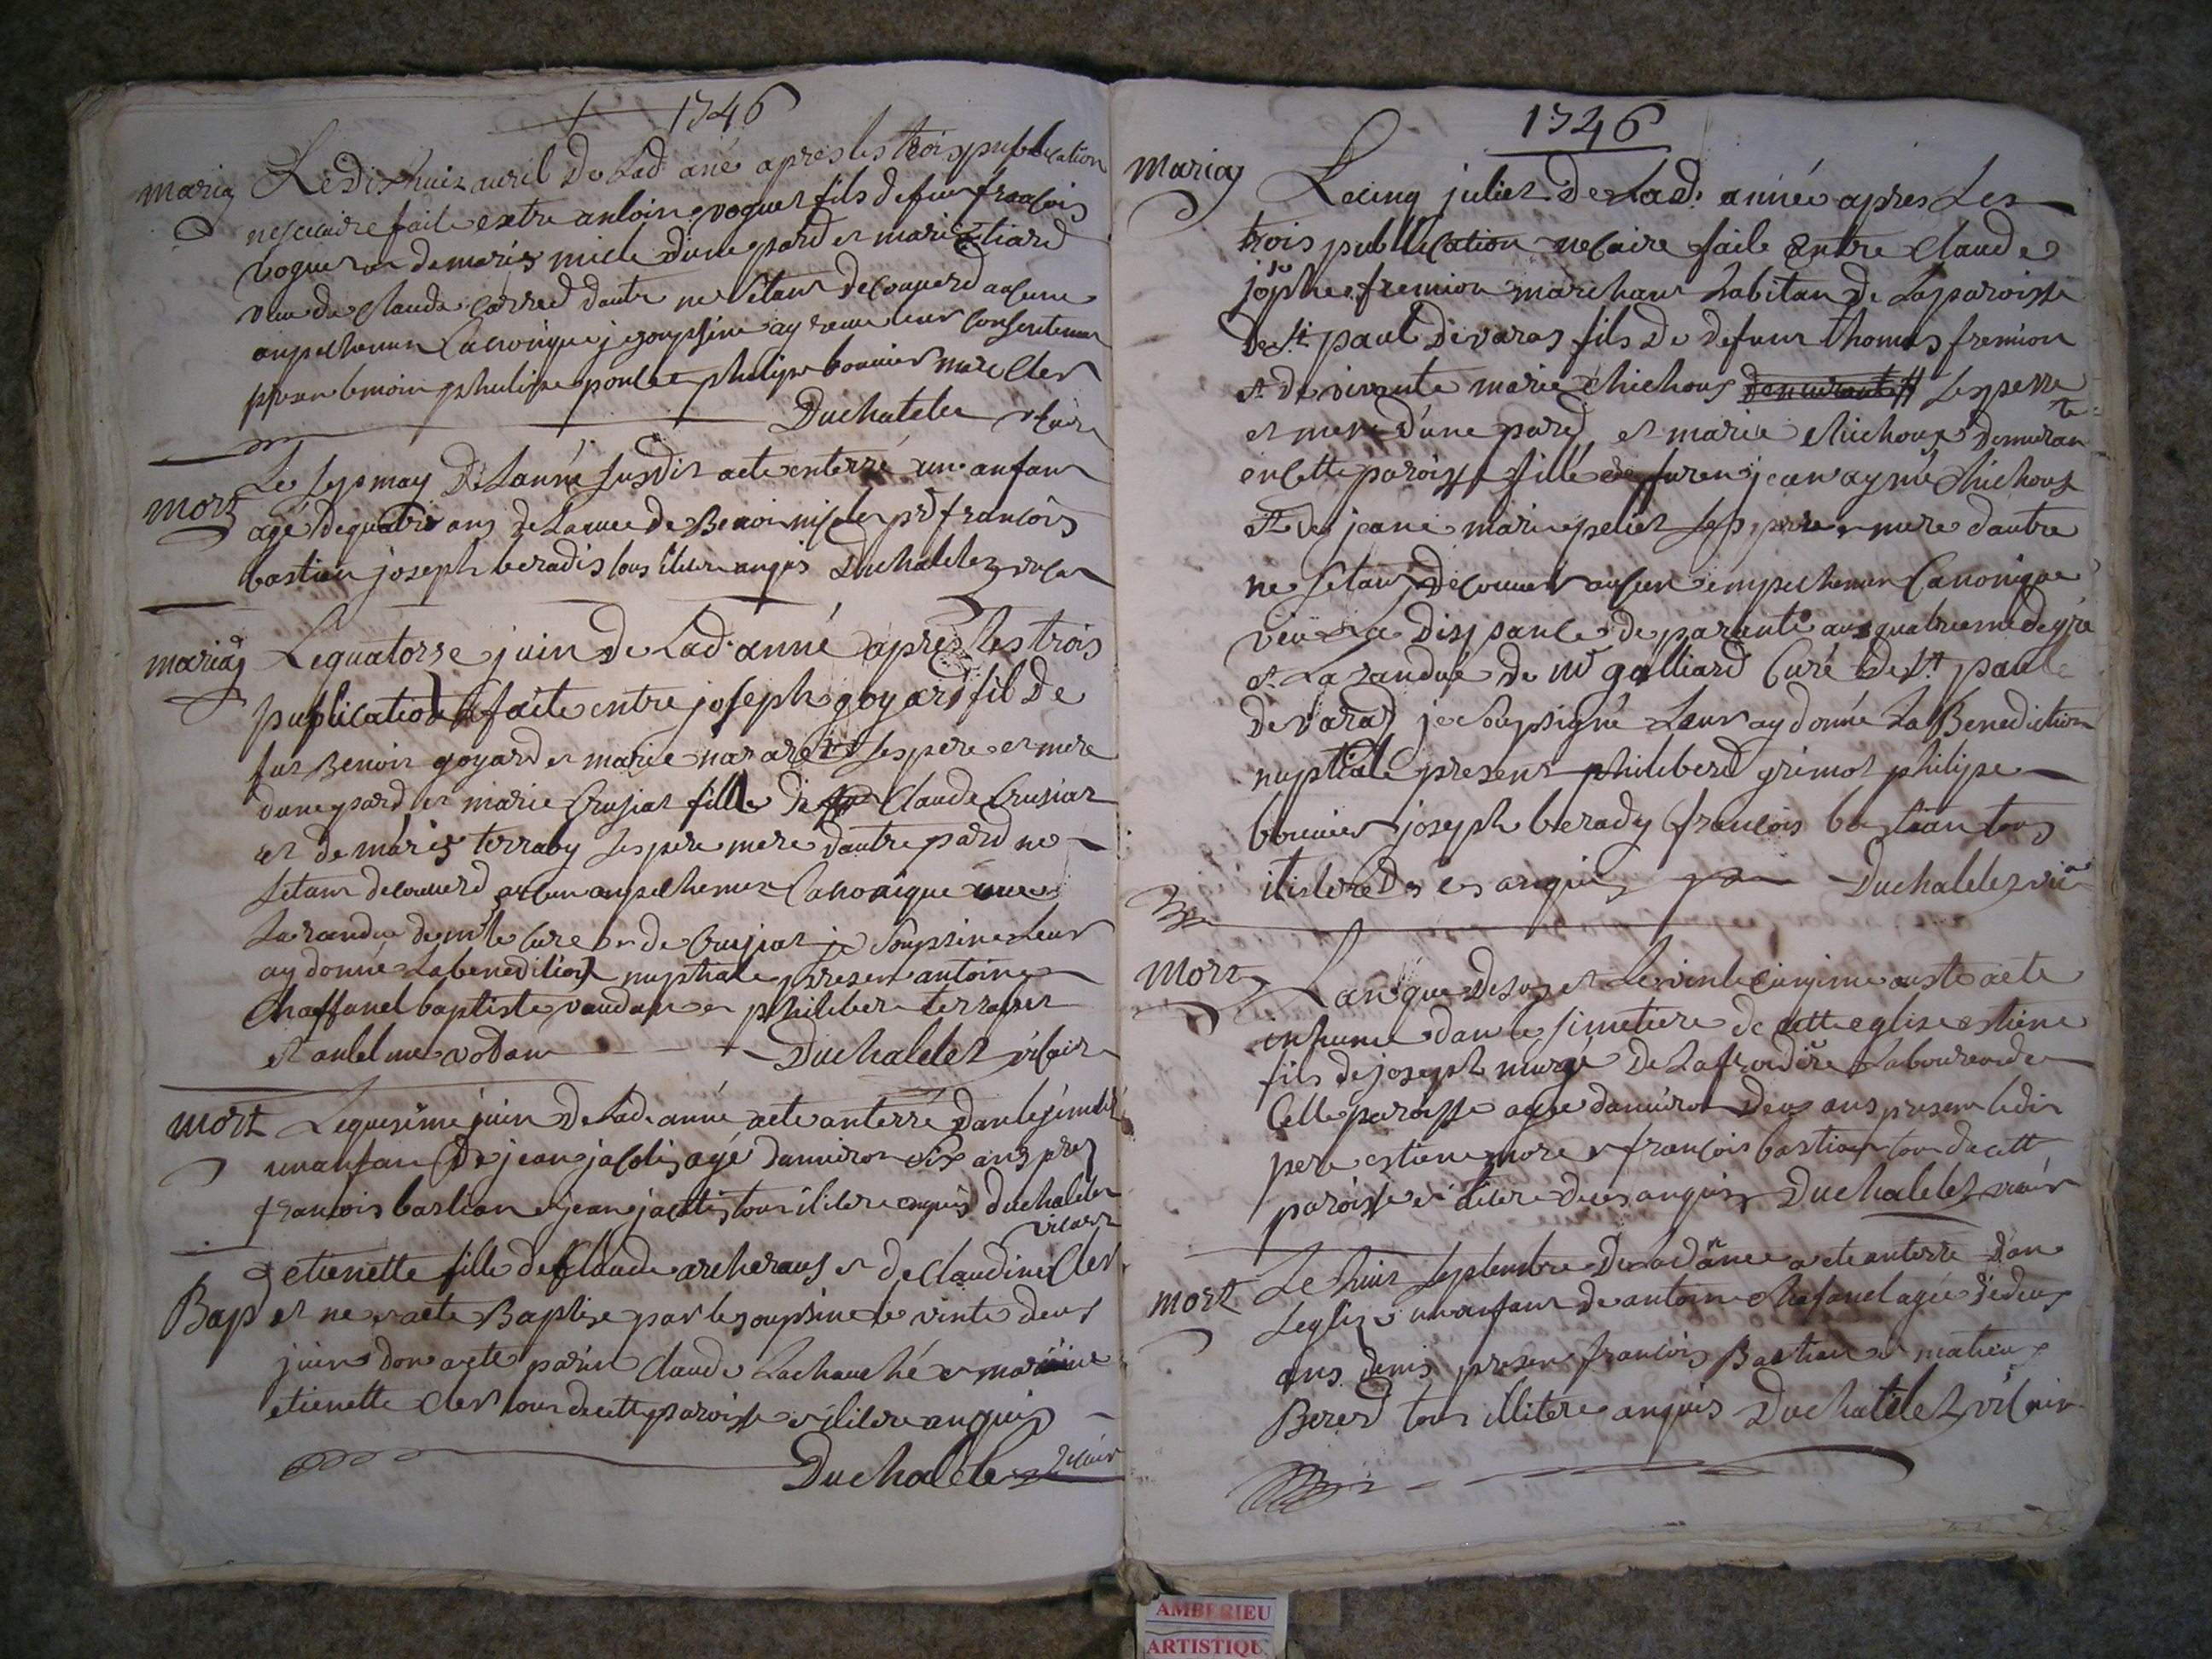 1746
mariag Le dixhuit auril De Lad ané apres les trois publication
nesceaire faite entre antoine voguet fils de feu francois
voguet et de marie micle dune pard et marie Etiard
veue de Claude Carred dautre ne setant decouuerd aucune
anpechemen Canonique je soupsine ay receu leur consentemen
presen temoin philipe poncet philipe bouuier marc Cler
Duchatelez vicair
mort Le sep may De Lanné susdit aete enterré un anfant
agé de quatre ans de Benoi prst francois
bastian joseph beradis tous iliterre anquis Duchatelez vicair
mariag Le quatorse juin De Lad. anné apres les trois
publication faite entre joseph goyard fil De
fut Benoit goyard et marie nararet ses pere et mere
dune pard et marie Crusiat fille de Claude Crusiat
et de marie terraby ses pere mere dautre pard ne
setant decouuerd aucun anpechemen Canonique veue
La randue de mr le cure de Crusiat je soupsine Leur
ay donné La benediction nuptiale presen antoine
Chaffanel baptiste vaudan et philiber terrasser
et anselme vodan Duchatelet vicair
mort Le quesieme juin De Lad. anné aete anterré Dan le simetie
un anfan De jean jacolis agé danuiron six ans pres
francois bastian et jean jacolis tous iliterre anquis Duchatelez
vicair
Bap etienette fille de Claude archeraus et de Claudine Cler
et ne et aete Baptise par le soupsine le vinte deus
juin don aete parin Claude Lachauché et maraine
etienette Cler tous de cette paroisse et ilitere anquis
Duchatelez vicair
1746
mariag Le cinq juliet De Lad. année apres Les
trois publication necaire faite Entre Claude
josphe fremion marchant habitan De La paroisse
De St. paul De varas fils De Defunt thomas fremion
et De viuante marie chichoux Demeurante ses perre
et mere D'une pard, et marie chichoux Demuran te
en cette paroisse fille de furen jean aymé chichoux
et De jeane marie peliet ses pere et mere dautre
ne setant Decouuert aucun empechemen Canonique
veü La Dispance de paranté aus quatrieme degré
et La randue de Mr galliard Curé De St. paul
De varas je soupsigné Leur ay donné La Benediction
nuptiale present philiberd grimot philipe
bouuier joseph berady francois bastian tous
ilisterés De ce anquis Duchatelez vicai
mort Lan que Desus et Le vinte cinqime auste aete
inhumé dan le simetiere de cette eglise etiene
fils de joseph De La froidiere Laboureur de
Cette paroisse agée danuiron Deus ans presen ledit
pere estiene more et francois bastian tous de cett
paroisse et ilitere De ce anquis Duchatelez vicair
mort Le huit septembre De Lad anneé aete anterre Dan
Leglize un anfant De antoine Chafanel agée de deus
ans demis presen francois Bastian et matieu
Bererd tous illitere anquis Duchatelez vicair
AMBERIEU
ARTISTIQU